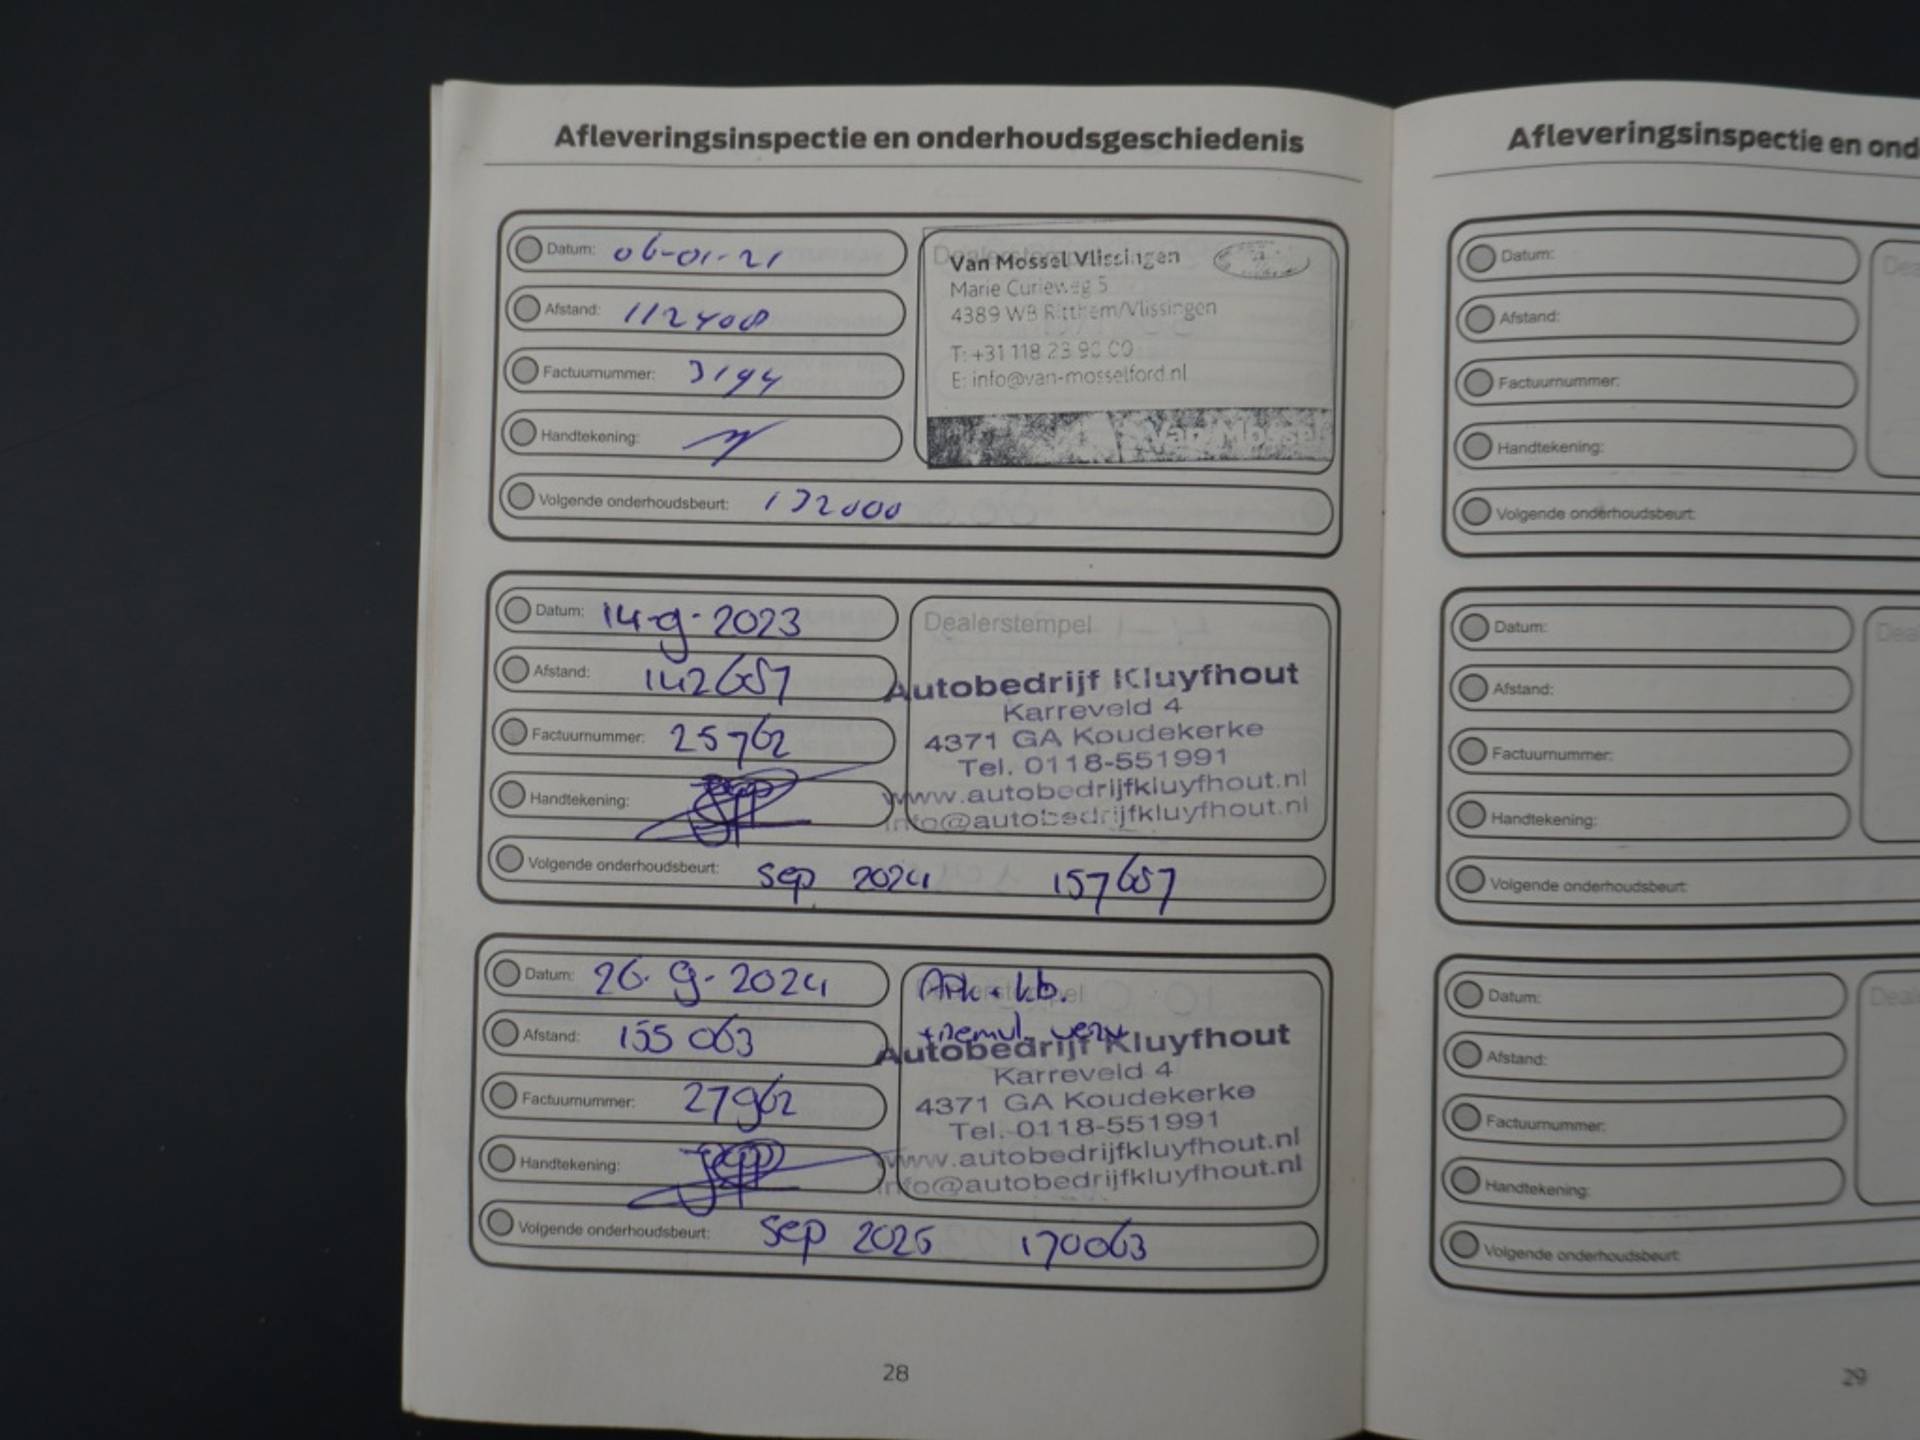 Afleveringsinspectie en onderhoudsgeschiedenis
Datum: 06-01-21
Afstand: 112408
Factuurnummer: 3194
Handtekening:
Volgende onderhoudsbeurt: 132000
Van Mossel Vlissingen
Marie Curieweg 5
4389 WB Ritthem/Vlissingen
T: +31 118 23 90 00
E: info@van-mosselford.nl
Van Mossel
Datum: 14-9-2023
Afstand: 142657
Factuurnummer: 25762
Handtekening:
Volgende onderhoudsbeurt: sep 2024 157657
Dealerstempel
Autobedrijf Kluyfhout
Karreveld 4
4371 GA Koudekerke
Tel. 0118-551991
www.autobedrijfkluyfhout.nl
info@autobedrijfkluyfhout.nl
Datum: 26-9-2024
Afstand: 155 063
Factuurnummer: 27962
Handtekening:
Volgende onderhoudsbeurt: sep 2025 170063
Dealerstempel
Autobedrijf Kluyfhout
Karreveld 4
4371 GA Koudekerke
Tel. 0118-551991
www.autobedrijfkluyfhout.nl
info@autobedrijfkluyfhout.nl
28
Afleveringsinspectie en ond
Datum:
Afstand:
Factuurnummer:
Handtekening:
Volgende onderhoudsbeurt:
Dea
Datum:
Afstand:
Factuurnummer:
Handtekening:
Volgende onderhoudsbeurt:
Dea
Datum:
Afstand:
Factuurnummer:
Handtekening:
Volgende onderhoudsbeurt:
Deal
29